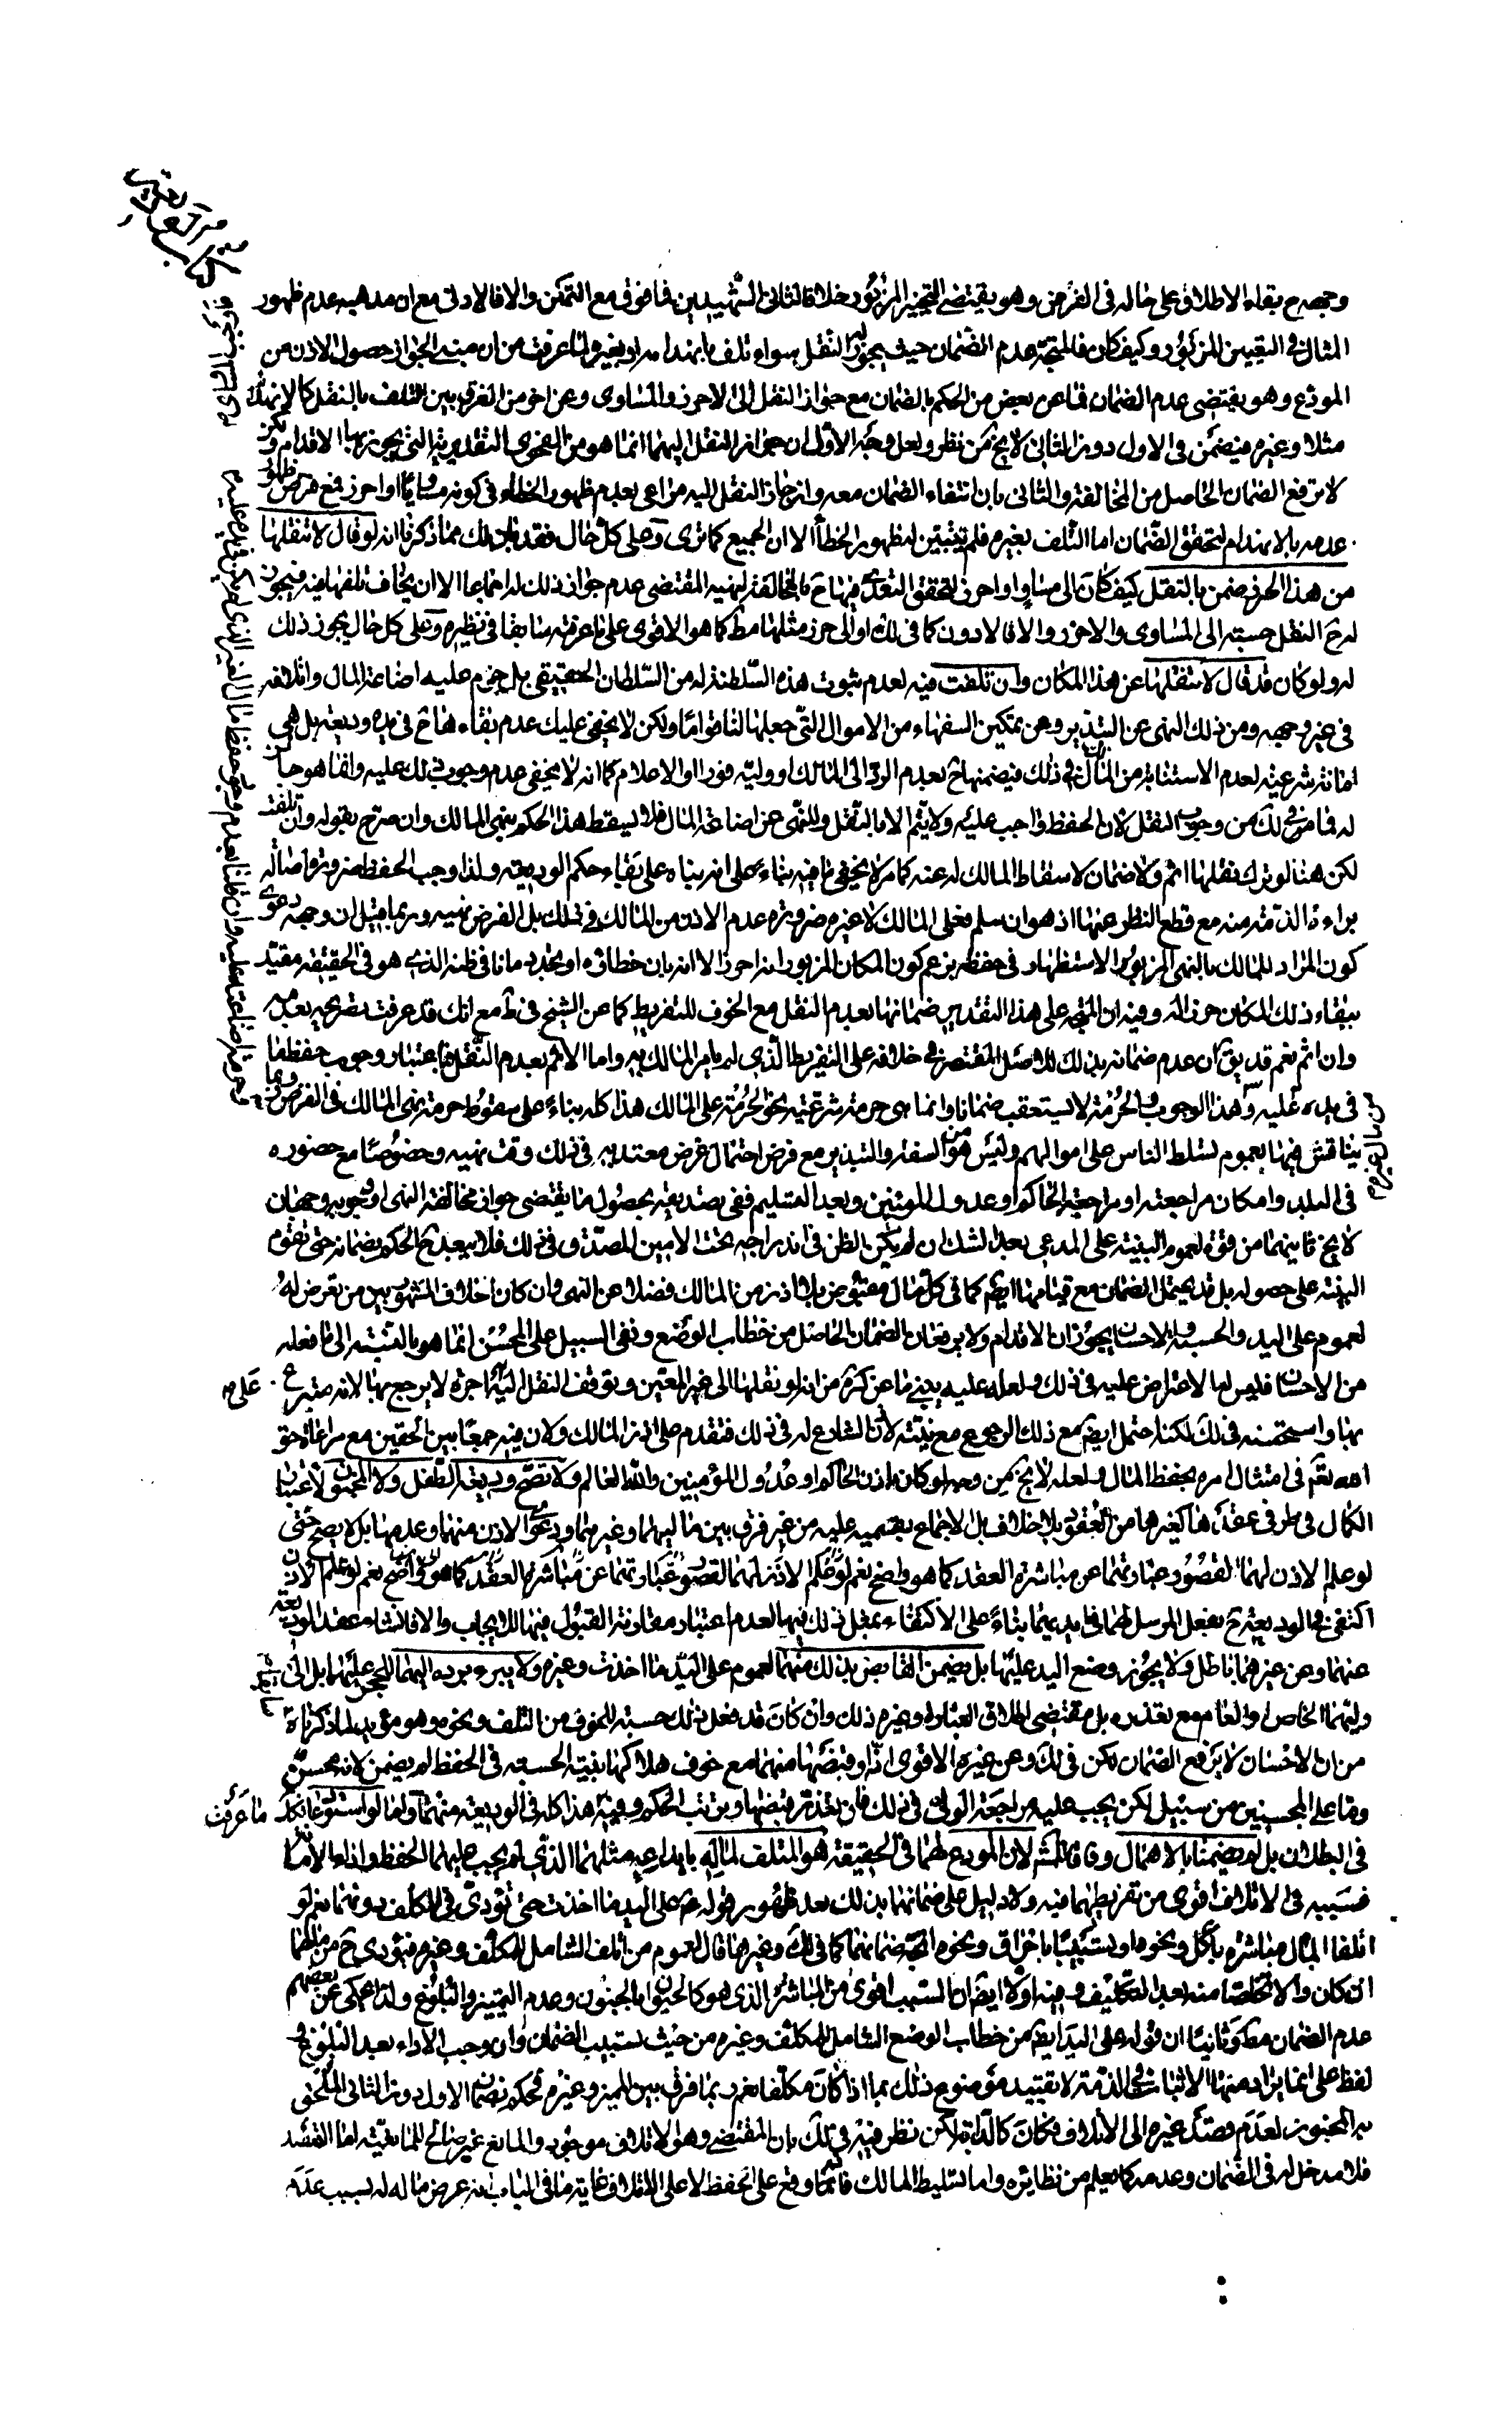 وجهه ح بقاء الاطلاق على حاله فى الفرض وهو يقتضى التخيير المزبور خلافا لثانى الشهيدين فما فوق مع التمكن والا فالادنى مع ان مذهبه عدم ظهور
المثال فى التعيين المزبور وكيف كان فالمتجه عدم الضمان حيث يجوز له النقل سواء تلف بانهدامه او بغيره لما عرفت من ان مبنى الجواز حصول الاذن من
المودع وهو يقتضى عدم الضمان فما عن بعض من الحكم بالضمان مع جواز النقل الى الاحرز والمساوى وعن اخر من الفرق بين التلف بالنقل كالانهدام
مثلا وغيره فيضمن فى الاول دون الثانى لا يخ من نظر ولعل وجه الاول ان جواز النقل اليهما انما هو من الفحوى التقديرية التى يجوز بها الاقدام ولكن
لا ترفع الضمان الحاصل من المخالفة والثانى بان انتفاء الضمان معه وان جاز النقل اليه مراعى بعدم ظهور الخطاء فى كونه مساويا او احرز فمع فرض ظهور
عدمه بالانهدام يتحقق الضمان اما التلف بغيره فلم يتبين به ظهور الخطأ الا ان الجميع كما ترى وعلى كل حال فقد بان لك مما ذكرنا انه لو قال لا تنقلها
من هذا الحرز ضمن بالنقل كيف كان الى مساو او احرز لتحقق التعدى فيها ح بالمخالفة لنهيه المقتضى عدم جواز ذلك له اجماعا الا ان يخاف تلفها فيه فيجوز
له ح النقل حسبة الى المساوى والاحرز والا فالادون كما فى لك او الى حرز مثلها مط كما هو الاقوى على ما عرفته سابقا فى نظيره وعلى كل حال يجوز ذلك
له ولو كان قد قال لا تنقلها عن هذا المكان وان تلفت فيه لعدم ثبوت هذه السلطنة له من السلطان الحقيقى بل حرم عليه اضاعة المال واتلافه
فى غير وجهه ومن ذلك النهى عن التبذير وعن تمكين السفهاء من الاموال التى جعلها لنا قواما ولكن لا يخفى عليك عدم بقائها ح فى يده وديعة بل هى
امانة شرعية لعدم الاستنابة من المالك فى ذلك فيضمنها ح بعدم الرد الى المالك او وليه فورا او الاعلام كما انه لا يخفى عدم وجوب ذلك عليه وانما هو جايز
له فما فى لك من وجوب النقل لان الحفظ واجب عليه ولا يتم الا بالنقل وللنهى عن اضاعة المال فلا يسقط هذا الحكم بنهى المالك وان صرح بقوله وان تلفت
لكن هنا لو ترك نقلها اثم ولا ضمان لاسقاط المالك له عنه كما مر لا يخفى ما فيه بناء على انه بناه على بقاء حكم الوديعة ولذا وجب الحفظ ضرورة اصالة
براءة الذمة منه مع قطع النظر عنها اذ هو ان سلم فعلى المالك لا غيره ضرورة عدم الاذن من المالك فى ذلك بل الفرض نهيه وربما قيل ان وجهه دعوى
كون المراد للمالك بالنهى المزبور الاستظهار فى حفظه بزعم كون المكان المزبور احرز الا انه بان خطاؤه او تجدد ما نافى ظنه الذى هو فى الحقيقة مقيد
ببقاء ذلك المكان حرزا له وفيه ان المتجه على هذا التقدير ضمانها بعدم النقل مع الخوف للتفريط كما عن الشيخ فى ط مع انك قد عرفت تصريحه بعدمه
وان اثم نعم قد يق ان عدم ضمانه بذلك للاصل المقتصر فى خلافه على التفريط الذى لم يامر المالك به واما الاثم بعدم النقل فباعتبار وجوب حفظ ما
فى يده عليه وهذا الوجوب والحرمة لا يستعقب ضمانا وانما هى حرمة شرعية نحو الحرمة على المالك هذا كله بناء على سقوط حرمة نهى المالك فى الفرض وربما
يناقش فيها بعموم تسلط الناس على اموالهم وليس هو من السفه والتبذير مع فرض احتمال غرض معتد به فى ذلك وقت نهيه وخصوصا مع حضوره
فى البلد وامكان مراجعته او مراجعة الحاكم او عدول المؤمنين وبعد التسليم ففى تصديقه بحصول ما يقتضى جواز مخالفة النهى او وجوبه وجهان
لا يخ ثانيهما من قوة لعموم البينة على المدعى بعد الشك ان لم يكن الظن فى اندراجه تحت الامين المصدق فى ذلك فلا يبعد ح الحكم بضمانه حتى تقوم
البينة على حصوله بل قد يحتمل الضمان مع قيامها ايضا كما فى كل مال مقبوض بلا اذن من المالك فضلا عن النهى وان كان خلاف المشهور بين من تعرض له
لعموم على اليد والحسبة والاحسان يجوزان الاقدام ولا يرفعان الضمان الحاصل من خطاب الوضع ونفى السبيل على المحسن انما هو بالنسبة الى ما فعله
من الاحسان فليس لها الاعتراض عليه فى ذلك ولعله عليه يبنى ما عن كره من انه لو نقلها الى غير المعين وتوقف النقل الى اجرة لا يرجع بها لانه متبرع
بها واستحسنه فى لك لكنه احتمل ايضا مع ذلك الرجوع مع نيته لان الشارع له فى ذلك فتقدم على اذن المالك ولان فيه جمعا بين الحقين مع مراعاة حق
الله تعم فى امتثال امره بحفظ المال ولعله لا يخ من وجه لو كان باذن الحاكم او عدول المؤمنين والله العالم ولا تصح وديعة الطفل ولا المجنون لاعتبار
الكمال فى طرفى عقدها كغيرها من العقود بلا خلاف بل الاجماع بقسميه عليه من غير فرق بين ماليهما وغيرهما ودعوى الاذن منهما وعدمها بل لا يصح حتى
لو علم الاذن لهما لقصور عبارتهما عن مباشرة العقد كما هو واضح نعم لو علم الاذن
اكتفى فى الوديعة ح بفعل المرسل لهما فى ايديهما بناء على الاكتفاء بمثل ذلك فيها لعدم اعتبار مقارنة القبول فيها للايجاب والا فانشاء عقد الوديعة
عنهما وعن غيرهما باطل ولا يجوز وضع اليد عليها بل يضمن القابض بذلك منهما لعموم على اليد ما اخذت وغيره ولا يبرء برده اليهما للحجر عليهما بل الى
وليهما الخاص او العام مع تعذره بل مقتضى اطلاق العبارة وغيره ذلك وان كان قد فعل ذلك حسبة للخوف من التلف ونحوه وهو مؤيد لما ذكرناه
من ان الاحسان لا يرفع الضمان لكن فى لك وعن غيره الاقوى انه لو قبضها منهما مع خوف هلاكها بنية الحسبة فى الحفظ لم يضمن لانه محسن
وما على المحسنين من سبيل لكن يجب عليه مراجعة الولى فى ذلك فان تعذر قبضها وترتب الحكم وفيه هذا كله فى الوديعة منهما واما لو استودعا فكك ما عرفت
فى البطلان بل لم يضمنا بالاهمال وفاقا للمش لان المودع لهما فى الحقيقة هو المتلف لماله بايداعه مثلهما الذى لم يجب عليهما الحفظ واداء الامانة
فسببه فى الاتلاف اقوى من تفريطهما فيه ولا دليل على ضمانهما بذلك بعد ظهور قوله ع على اليد ما اخذت حتى تؤدى فى المكلف دونهما نعم لو
اتلفا المال مباشرة باكل ونحوه او تسبيبا باحراق ونحوه اتجه ضمانهما كما فى لك وغيرها قال لعموم من اتلف الشامل للمكلف وغيره فيؤدى ح من مالهما
ان كان والا تخلصا منه بعد التكليف وفيه اولا ايضا ان السبب اقوى من المباشر الذى هو كالحيوان بالجنون وعدم التمييز والبلوغ ولذا حكى عن بعضهم
عدم الضمان مط وثانيا ان قوله على اليد ايضا من خطاب الوضع الشامل للمكلف وغيره من حيث تسبيب الضمان وان وجب الاداء بعد البلوغ فى
لفظ على انما يراد منها الاثبات فى الذمة لا تقييد موضوع ذلك بما اذا كان مكلفا نعم ربما فرق بين المميز وغيره فحكم بضمان الاول دون الثانى الملحق
به المجنون لعدم قصد غيره الى الاتلاف فكان كالدابة لكن نظر فيه فى لك بان المقتضى وهو الاتلاف موجود والمانع غير صالح للمانعية اما القصد
فلا مدخل له فى الضمان وعدمه كما يعلم من نظائره واما تسليط المالك فانما وقع على الحفظ لا على الاتلاف غاية ما فى الباب انه عرض ماله له بسبب عدم